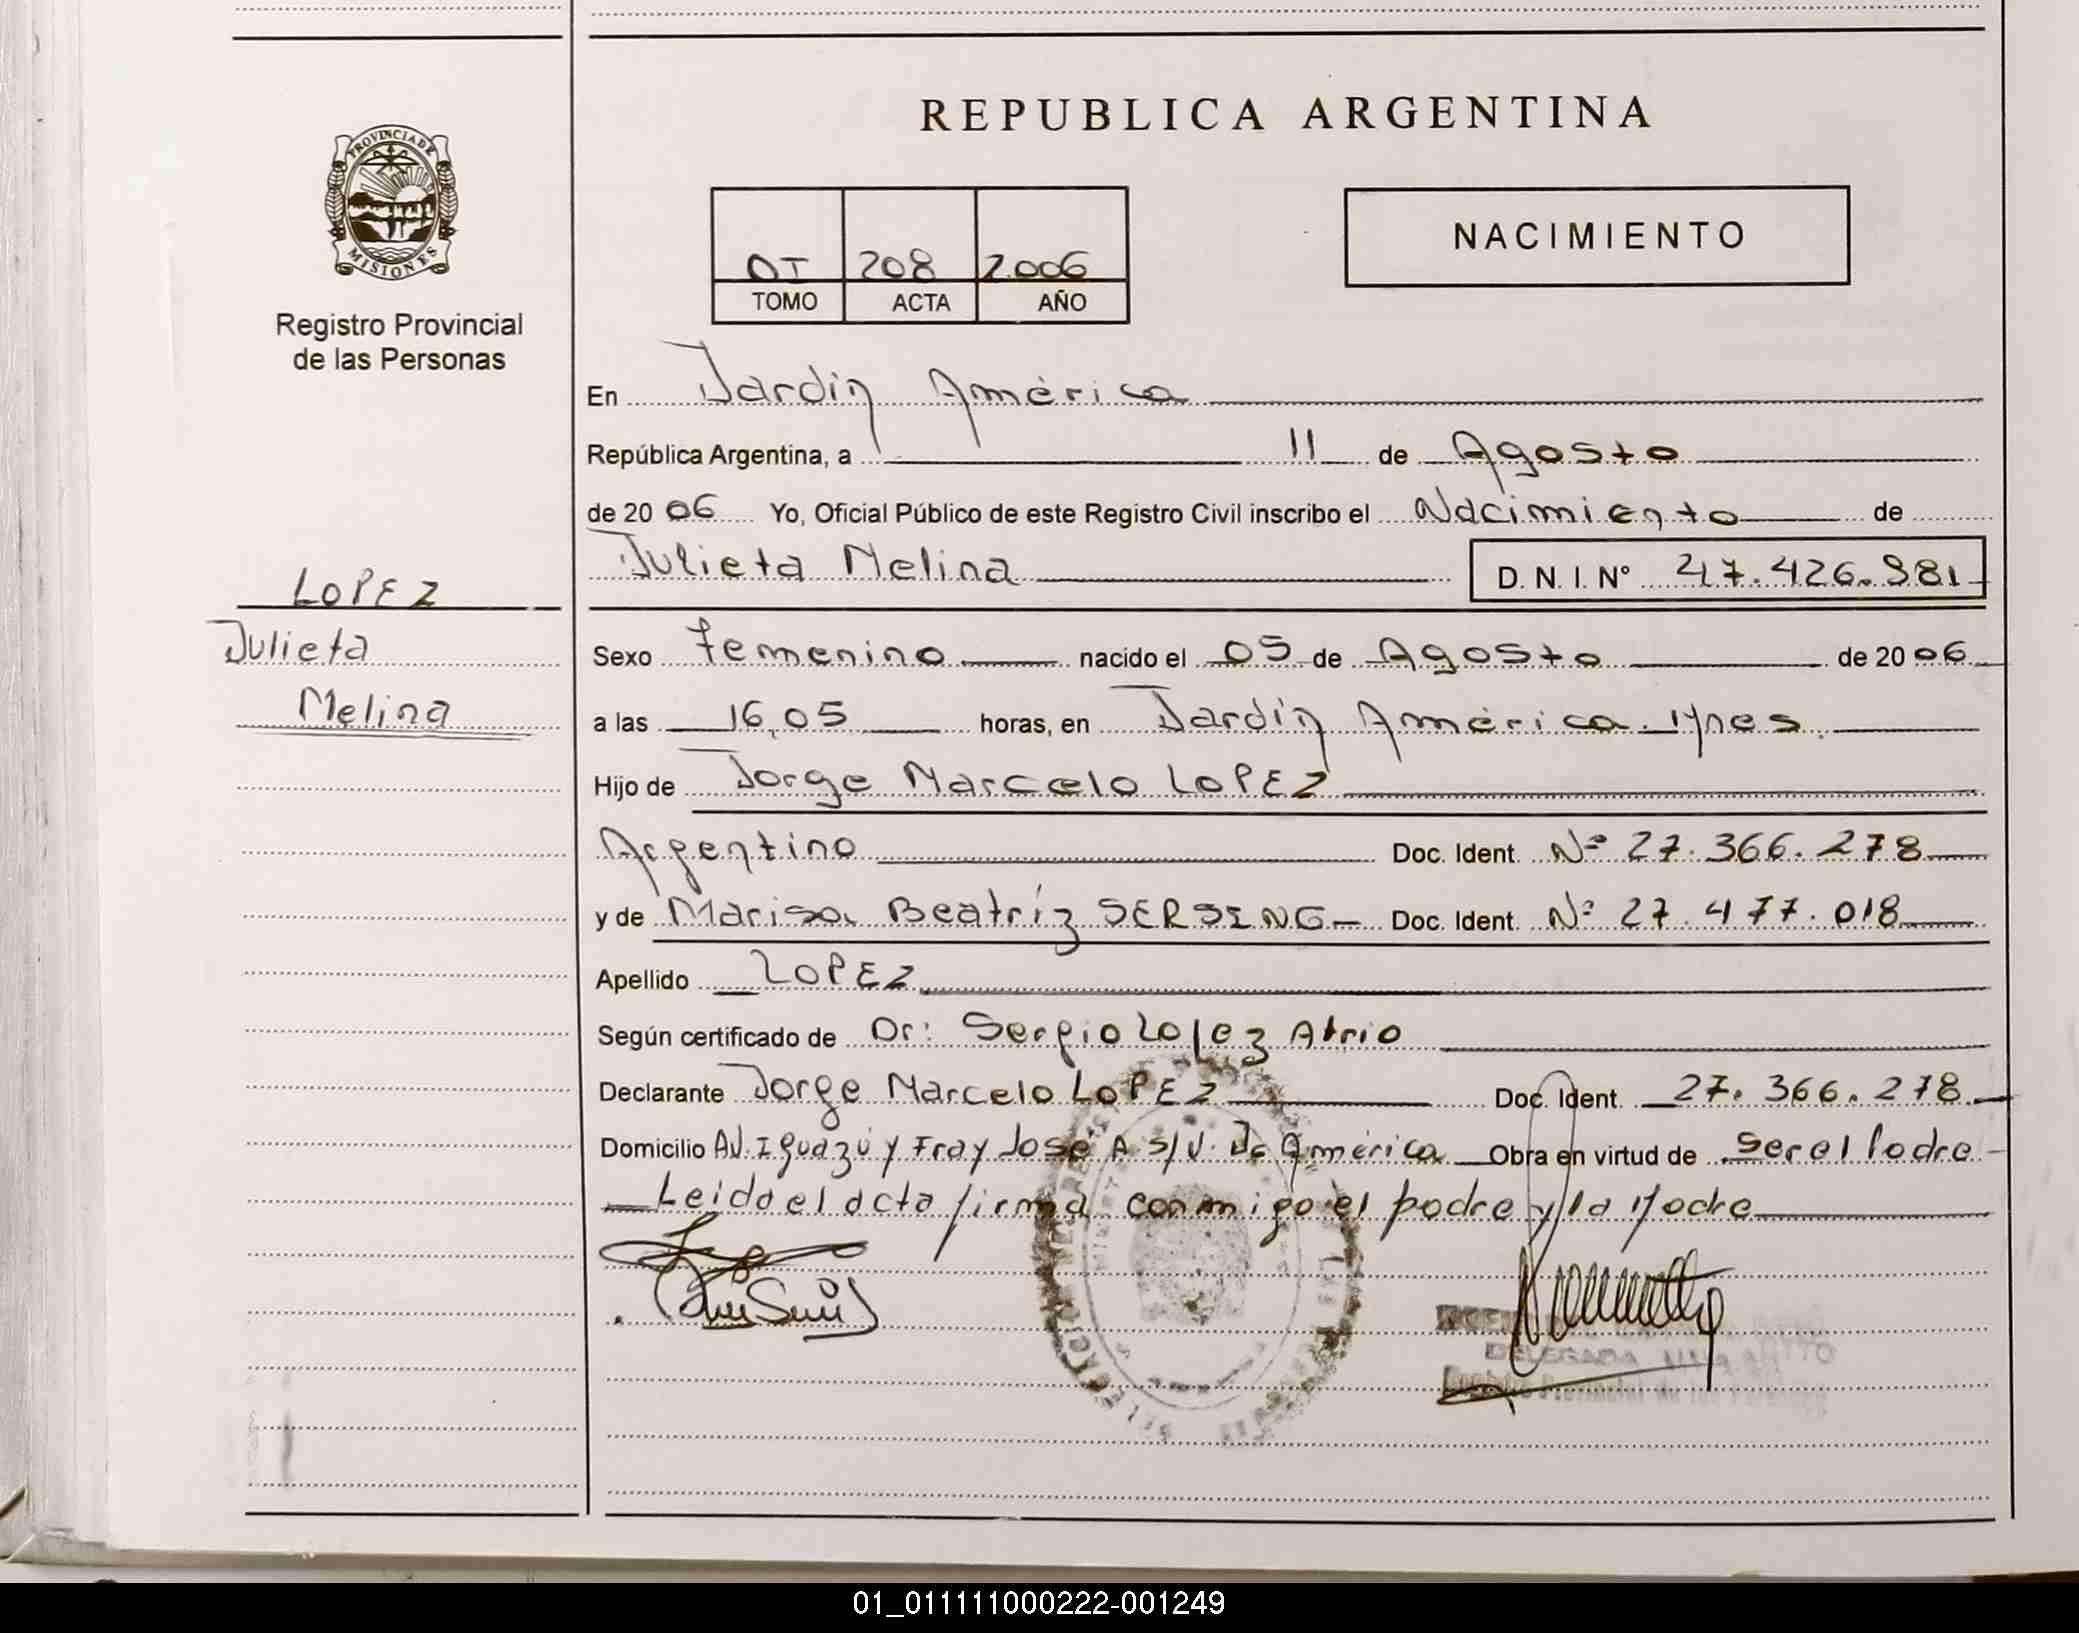 REPUBLICA ARGENTINA
PROVINCIA DE MISIONES
Registro Provincial
de las Personas
208 2.006
TOMO ACTA AÑO
NACIMIENTO
En Jardín América
República Argentina, a 11 de Agosto
de 2006 Yo, Oficial Público de este Registro Civil inscribo el Nacimiento de
Julieta Melina D. N. I. Nº
LOPEZ
Julieta
Melina
Sexo Femenino nacido el 05 de Agosto de 2006
a las 16,05 horas, en Jardín América
Hijo de Jorge Marcelo LOPEZ
Argentino Doc. Ident. Nº 27.366.278
y de Marisa Beatríz SERSING Doc. Ident. Nº 27.477.018
Apellido LOPEZ
Según certificado de Dr: Sergio Lopez Atrio
Declarante Jorge Marcelo LOPEZ Doc. Ident. 27.366.278
Domicilio Av. Iguazú y Fray José A S/N. América Obra en virtud de ser el Padre
Leida el acta firma conmigo el padre y la Madre
DELEGADA
01_011111000222-001249